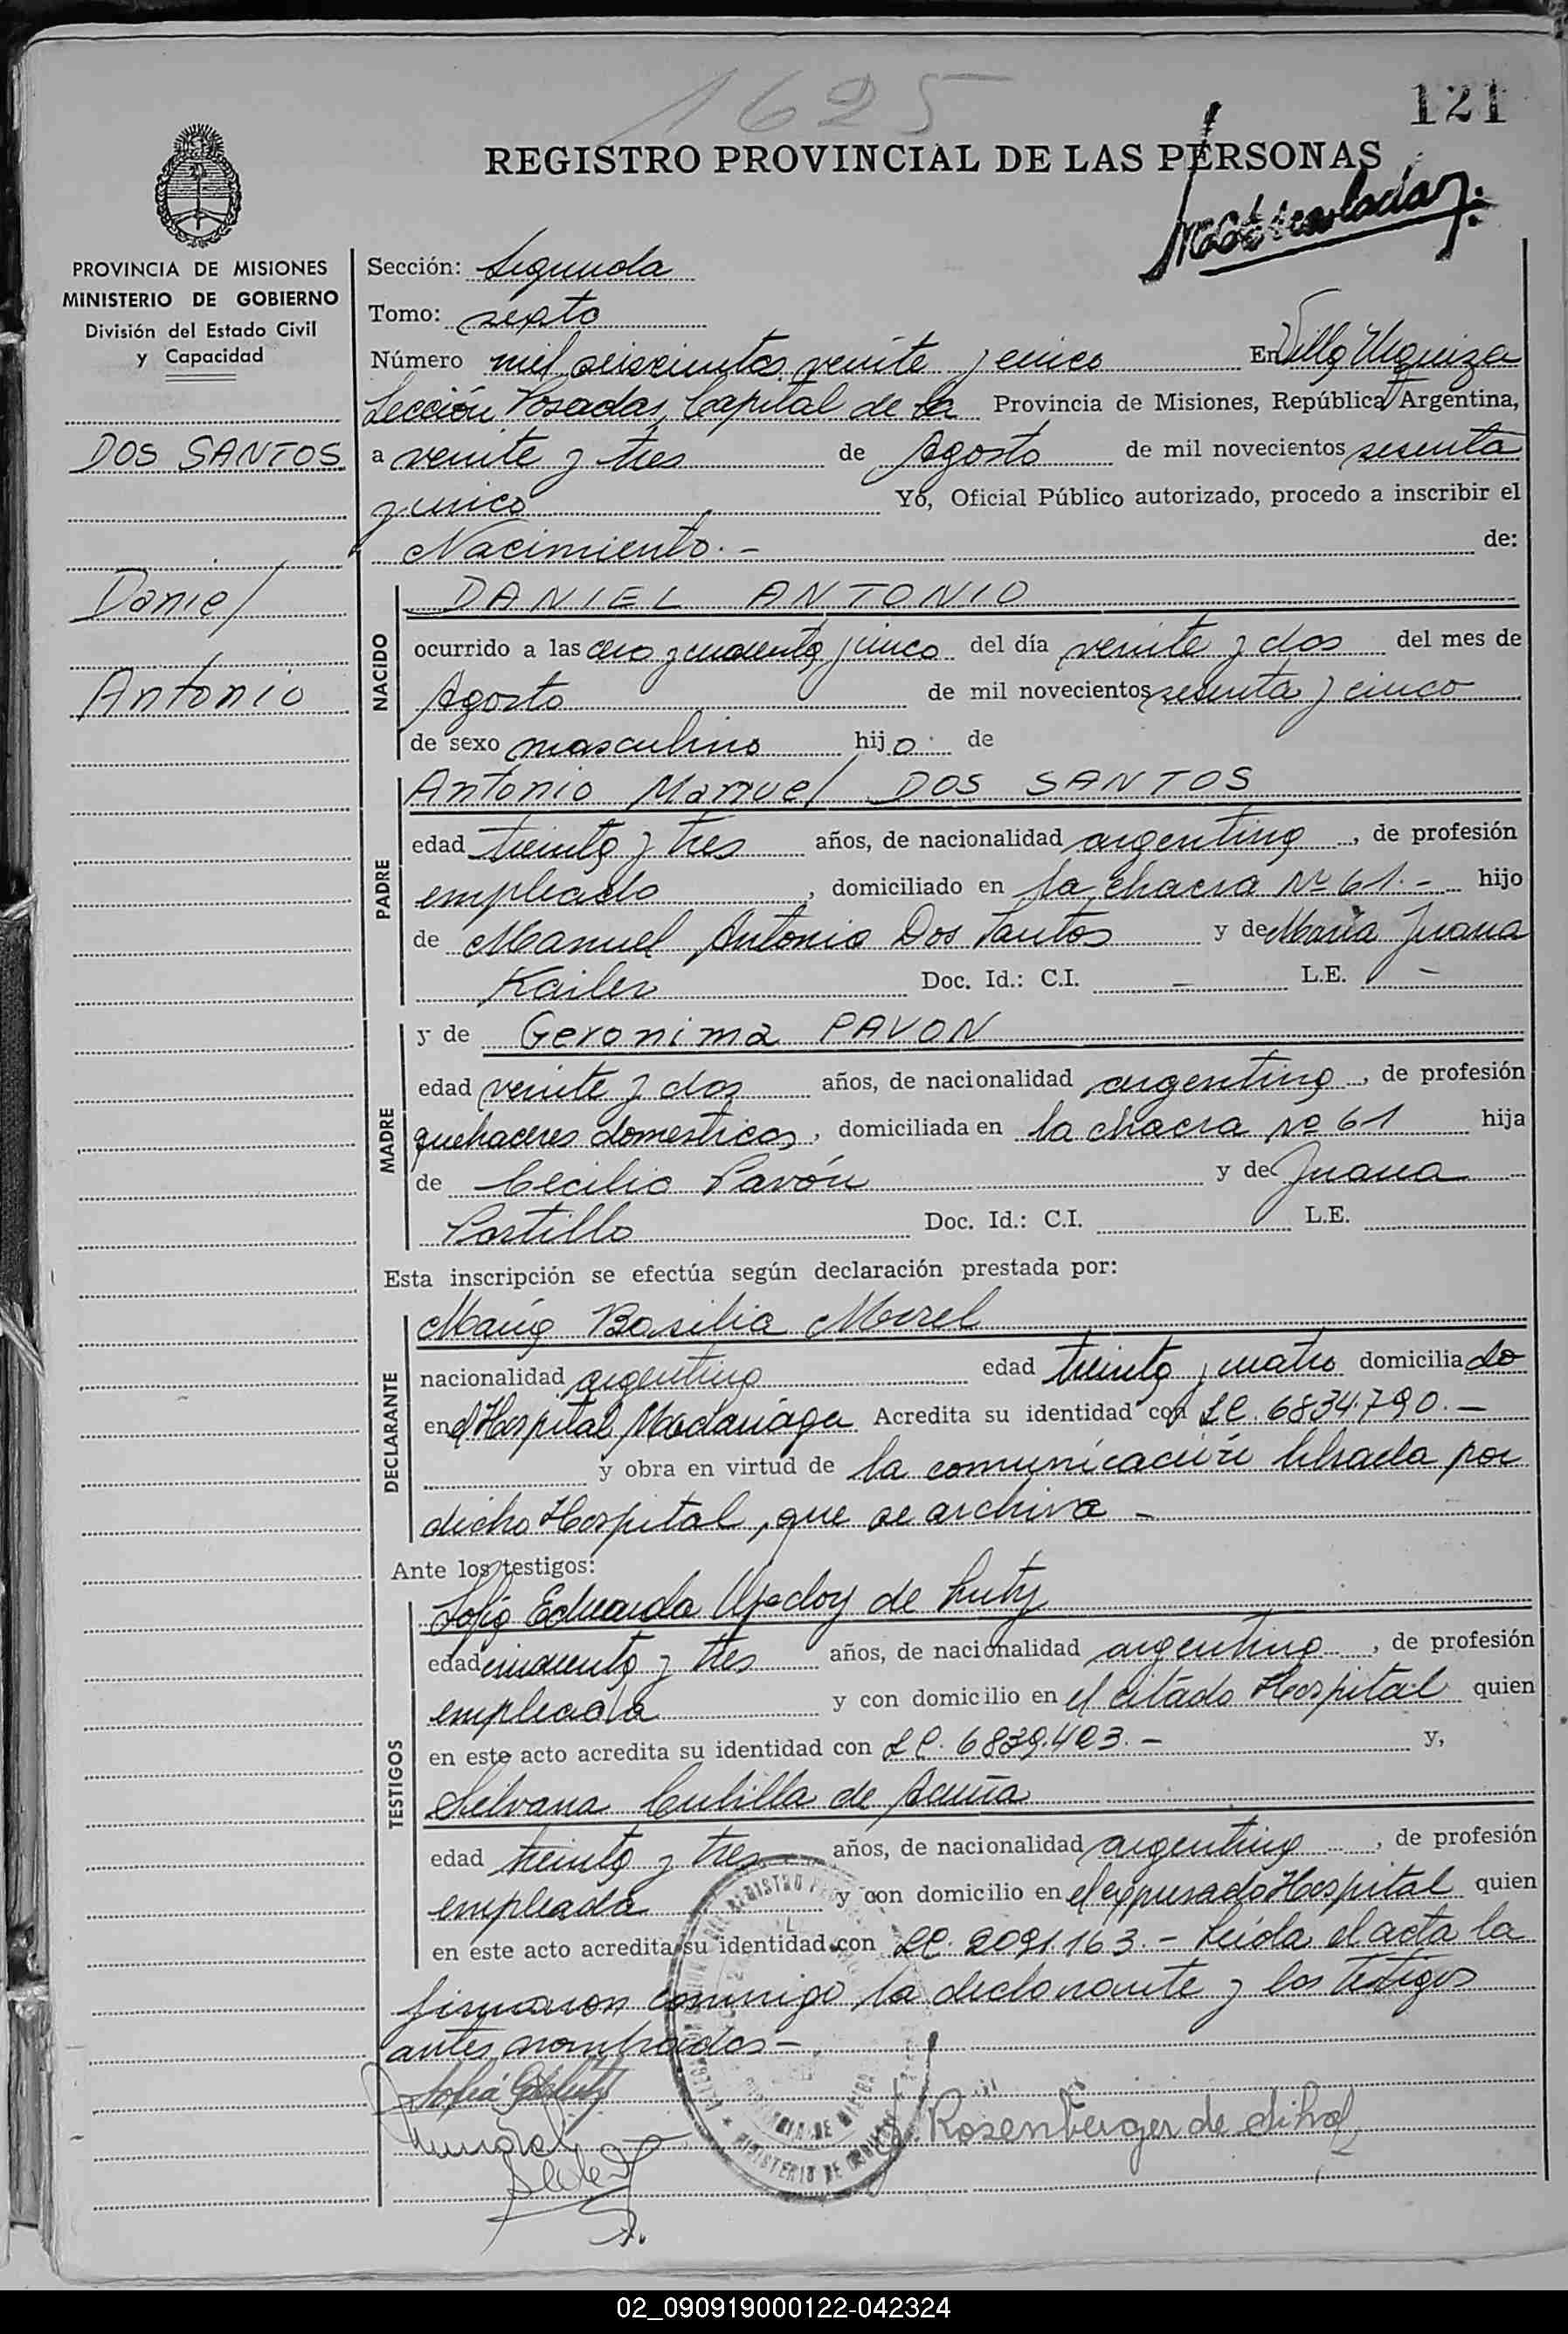 1625
121
REGISTRO PROVINCIAL DE LAS PERSONAS
PROVINCIA DE MISIONES
MINISTERIO DE GOBIERNO
División del Estado Civil
y Capacidad
DOS SANTOS
Daniel
Antonio
Sección: Segunda
Tomo: sexto
Número mil seiscientos veinte y cinco En Villa Urquiza
Sección Posadas, Capital de la Provincia de Misiones, República Argentina,
a veinte y tres de Agosto de mil novecientos sesenta
y cinco Yo, Oficial Público autorizado, procedo a inscribir el
Nacimiento.- de:
NACIDO
DANIEL ANTONIO
ocurrido a las cero y cuarenta y cinco del día veinte y dos del mes de
Agosto de mil novecientos sesenta y cinco
de sexo masculino hijo de
PADRE
Antonio Manuel DOS SANTOS
edad treinta y tres años, de nacionalidad argentina, de profesión
empleado, domiciliado en la chacra Nº 61.- hijo
de Manuel Antonio Dos Santos y de María Juana
Kailer Doc. Id.: C.I. - L.E. -
MADRE
y de Geronima PAVON
edad veinte y dos años, de nacionalidad argentina, de profesión
quehaceres domesticos, domiciliada en la chacra Nº 61 hija
de Cecilio Pavón y de Juana
Portillo Doc. Id.: C.I. L.E.
Esta inscripción se efectúa según declaración prestada por:
DECLARANTE
María Basilia Morel
nacionalidad argentina edad treinta y cuatro domiciliado
en el Hospital Madariaga Acredita su identidad con LC. 6834.790.-
y obra en virtud de la comunicación librada por
dicho Hospital, que se archiva -
Ante los testigos:
TESTIGOS
Sofia Eduarda de
edad cincuenta y tres años, de nacionalidad argentina, de profesión
empleada y con domicilio en el citado Hospital quien
en este acto acredita su identidad con LC. y,
Silvana de Acuña
edad treinta y tres años, de nacionalidad argentina, de profesión
empleada y con domicilio en el expresado Hospital quien
en este acto acredita su identidad con LC. 2091.163.- Leída el acta la
firmaron conmigo la declarante y los testigos
antes nombrados-
Rosenberger de
02_090919000122-042324